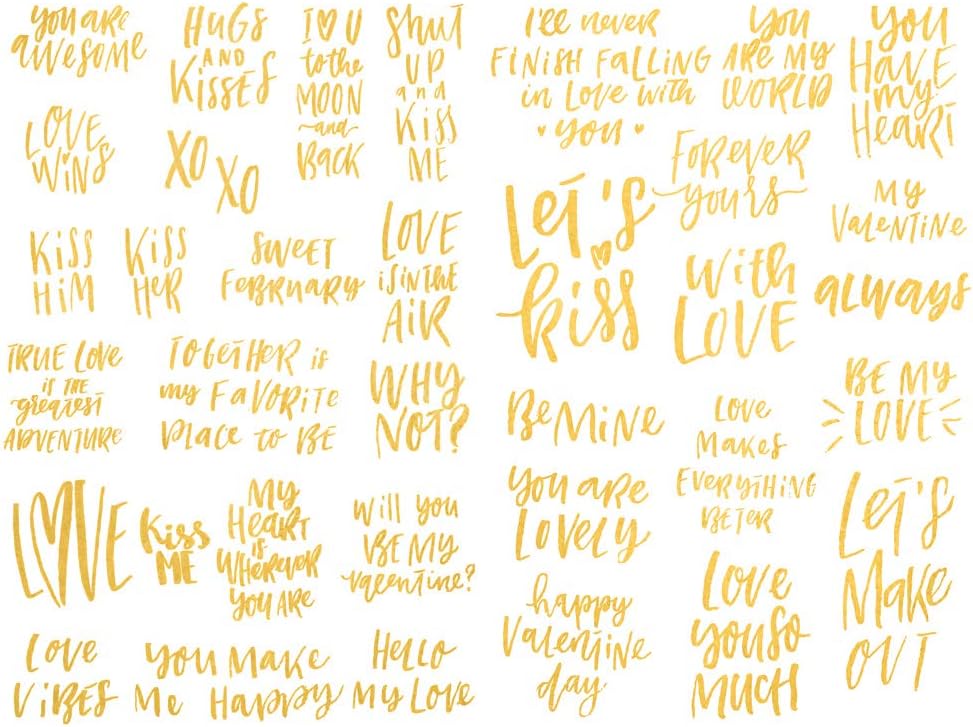 you are
awesome
HUGS
AND
KISSES
I ♥ U
to the
MOON
and
BACK
Shut
UP
and
Kiss
ME
LOVE
WiNS
XO
XO
KiSS
HiM
KiSS
HER
SWEET
FEBRUARY
LOVE
iS iN THE
AiR
TRUE LOVE
iS THE
greatest
ADVENTURE
TOGETHER is
my FAVORiTE
PLACE to BE
WHY
NOT?
LOVE
Kiss
ME
MY
HEART
iS
WHEREVER
YOU ARE
Will you
BE MY
valentine?
Love
ViBES
YOU MAKE
Me HAPPY
HELLO
MY LOVE
I'll never
FINISH FALLING
in Love with
you
YOU
ARE MY
WORLD
YOU
HAVE
my
HEART
FOREVER
yours
LET'S
kiss
MY
VALENTINE
With
LOVE
always
BE MiNE
LOVE
MAKES
EVERYTHING
BETER
BE MY
LOVE
YOU ARE
LOVELY
LET'S
MAKE
OUT
happy
Valentine
day
LOVE
you SO
MUCH